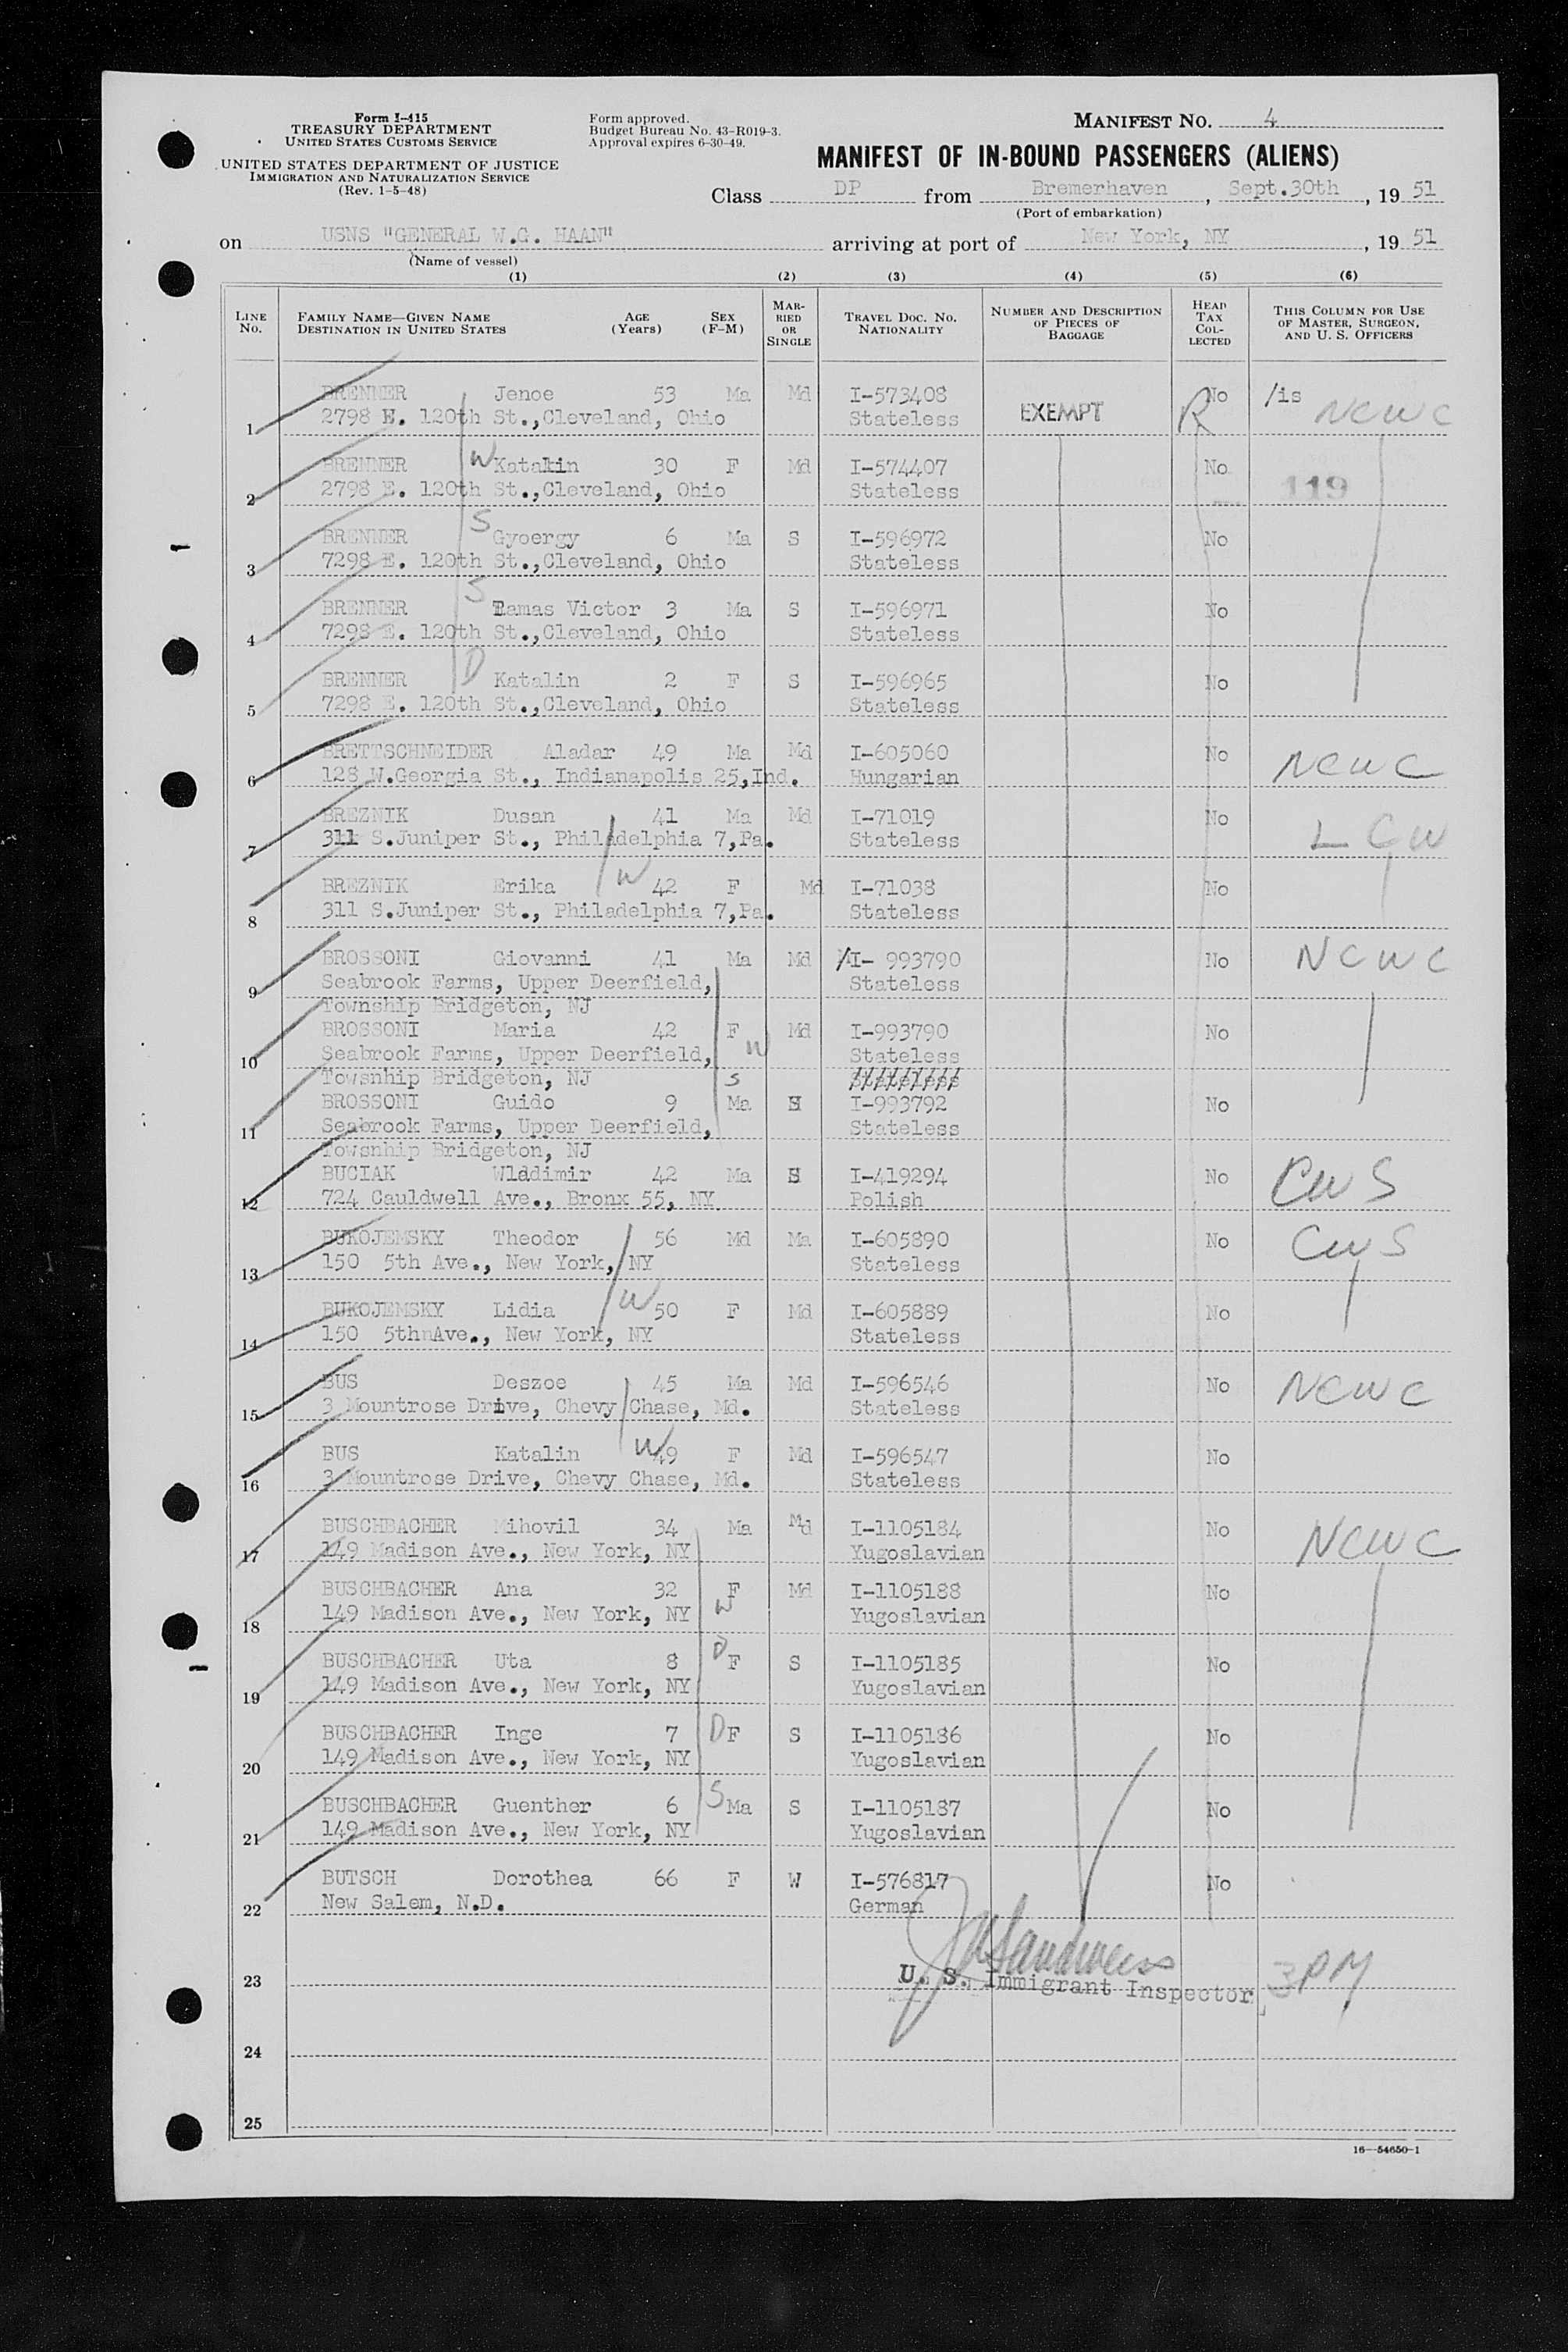 Form I-415
TREASURY DEPARTMENT
UNITED STATES CUSTOMS SERVICE
UNITED STATES DEPARTMENT OF JUSTICE
IMMIGRATION AND NATURALIZATION SERVICE
(Rev. 1-5-48)
Form approved.
Budget Bureau No. 43-R019-3.
Approval expires 6-30-49.
MANIFEST NO. 4
MANIFEST OF IN-BOUND PASSENGERS (ALIENS)
Class DP from Bremerhaven, Sept.30th, 19 51
(Port of embarkation)
on USNS "GENERAL W.G. HAAN" arriving at port of New York, NY, 19 51
(Name of vessel)
(1) (2) (3) (4) (5) (6)
LINE NO. FAMILY NAME—GIVEN NAME DESTINATION IN UNITED STATES AGE (Years) SEX (F-M) MARRIED OR SINGLE TRAVEL DOC. NO. NATIONALITY NUMBER AND DESCRIPTION OF PIECES OF BAGGAGE HEAD TAX COLLECTED THIS COLUMN FOR USE OF MASTER, SURGEON, AND U. S. OFFICERS
BRENNER Jenoe 53 Ma Md I-573408 EXEMPT R No /is NCWC
1 2798 E. 120th St.,Cleveland, Ohio Stateless
BRENNER W Katalin 30 F Md I-574407 No 119
2 2798 E. 120th St.,Cleveland, Ohio Stateless
BRENNER S Gyoergy 6 Ma S I-596972 No
3 7298 E. 120th St.,Cleveland, Ohio Stateless
BRENNER S Tamas Victor 3 Ma S I-596971 No
4 7298 E. 120th St.,Cleveland, Ohio Stateless
BRENNER D Katalin 2 F S I-596965 No
5 7298 E. 120th St.,Cleveland, Ohio Stateless
BRETTSCHNEIDER Aladar 49 Ma Md I-605060 No NCWC
6 128 W.Georgia St., Indianapolis 25,Ind. Hungarian
BREZNIK Dusan 41 Ma Md I-71019 No LCW
7 311 S.Juniper St., Philadelphia 7,Pa. Stateless
BREZNIK Erika W 42 F Md I-71038 No
8 311 S.Juniper St., Philadelphia 7,Pa. Stateless
BROSSONI Giovanni 41 Ma Md I- 993790 No NCWC
9 Seabrook Farms, Upper Deerfield, Stateless
Township Bridgeton, NJ
BROSSONI Maria 42 F W Md I-993790 No
10 Seabrook Farms, Upper Deerfield, Stateless
Towsnhip Bridgeton, NJ S Stateless
BROSSONI Guido 9 Ma S I-993792 No
11 Seabrook Farms, Upper Deerfield, Stateless
Towsnhip Bridgeton, NJ
BUCIAK Wladimir 42 Ma S I-419294 No CWS
12 724 Cauldwell Ave., Bronx 55, NY. Polish
BUKOJEMSKY Theodor 56 Md Ma I-605890 No CWS
13 150 5th Ave., New York, NY Stateless
BUKOJEMSKY Lidia W 50 F Md I-605889 No
14 150 5thnAve., New York, NY Stateless
BUS Deszoe 45 Ma Md I-596546 No NCWC
15 3 Mountrose Drive, Chevy Chase, Md. Stateless
BUS Katalin W 49 F Md I-596547 No
16 3 Mountrose Drive, Chevy Chase, Md. Stateless
BUSCHBACHER Mihovil 34 Ma Md I-1105184 No NCWC
17 149 Madison Ave., New York, NY Yugoslavian
BUSCHBACHER Ana 32 F Md I-1105188 No
18 149 Madison Ave., New York, NY W Yugoslavian
BUSCHBACHER Uta 8 D F S I-1105185 No
19 149 Madison Ave., New York, NY Yugoslavian
BUSCHBACHER Inge 7 D F S I-1105186 No
20 149 Madison Ave., New York, NY Yugoslavian
BUSCHBACHER Guenther 6 S Ma S I-1105187 No
21 149 Madison Ave., New York, NY Yugoslavian
BUTSCH Dorothea 66 F W I-576817 No
22 New Salem, N.D. German
23 U. S. Immigrant Inspector 3PM
24
25
16—54650-1